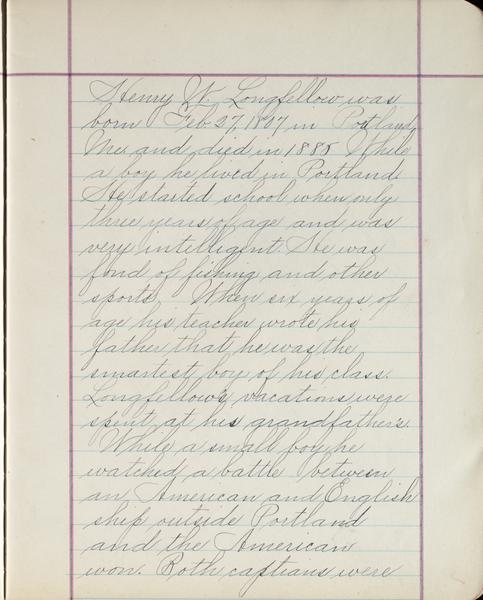 Henry W. Longfellow was
born Feb. 27, 1807 in Portland,
Me. and died in 1885. While
a boy he lived in Portland.
He started school when only
three years of age and was
very intelligent. He was
fond of fishing and other
sports. When six years of
age his teacher wrote his
father that he was the
smartest boy of his class.
Longfellow's vacations were
spent at his grandfather's.
While a small boy he
watched a battle between
an American and English
ship outside Portland
and the American
won. Both captians were